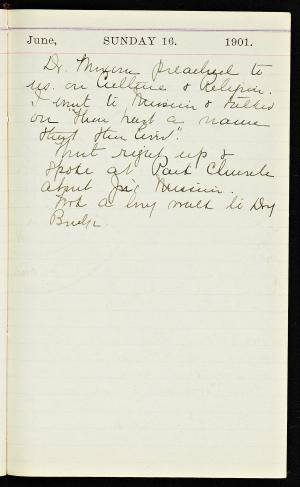 June, SUNDAY 16. 1901.
Dr. preached to
us. on Culture & Religion.
I went to Mission & talked
on "Thou hast a name
that thou livest".
Went right up &
spoke at Park Church
about Mission.
Took a long walk to Dry
Bridge.